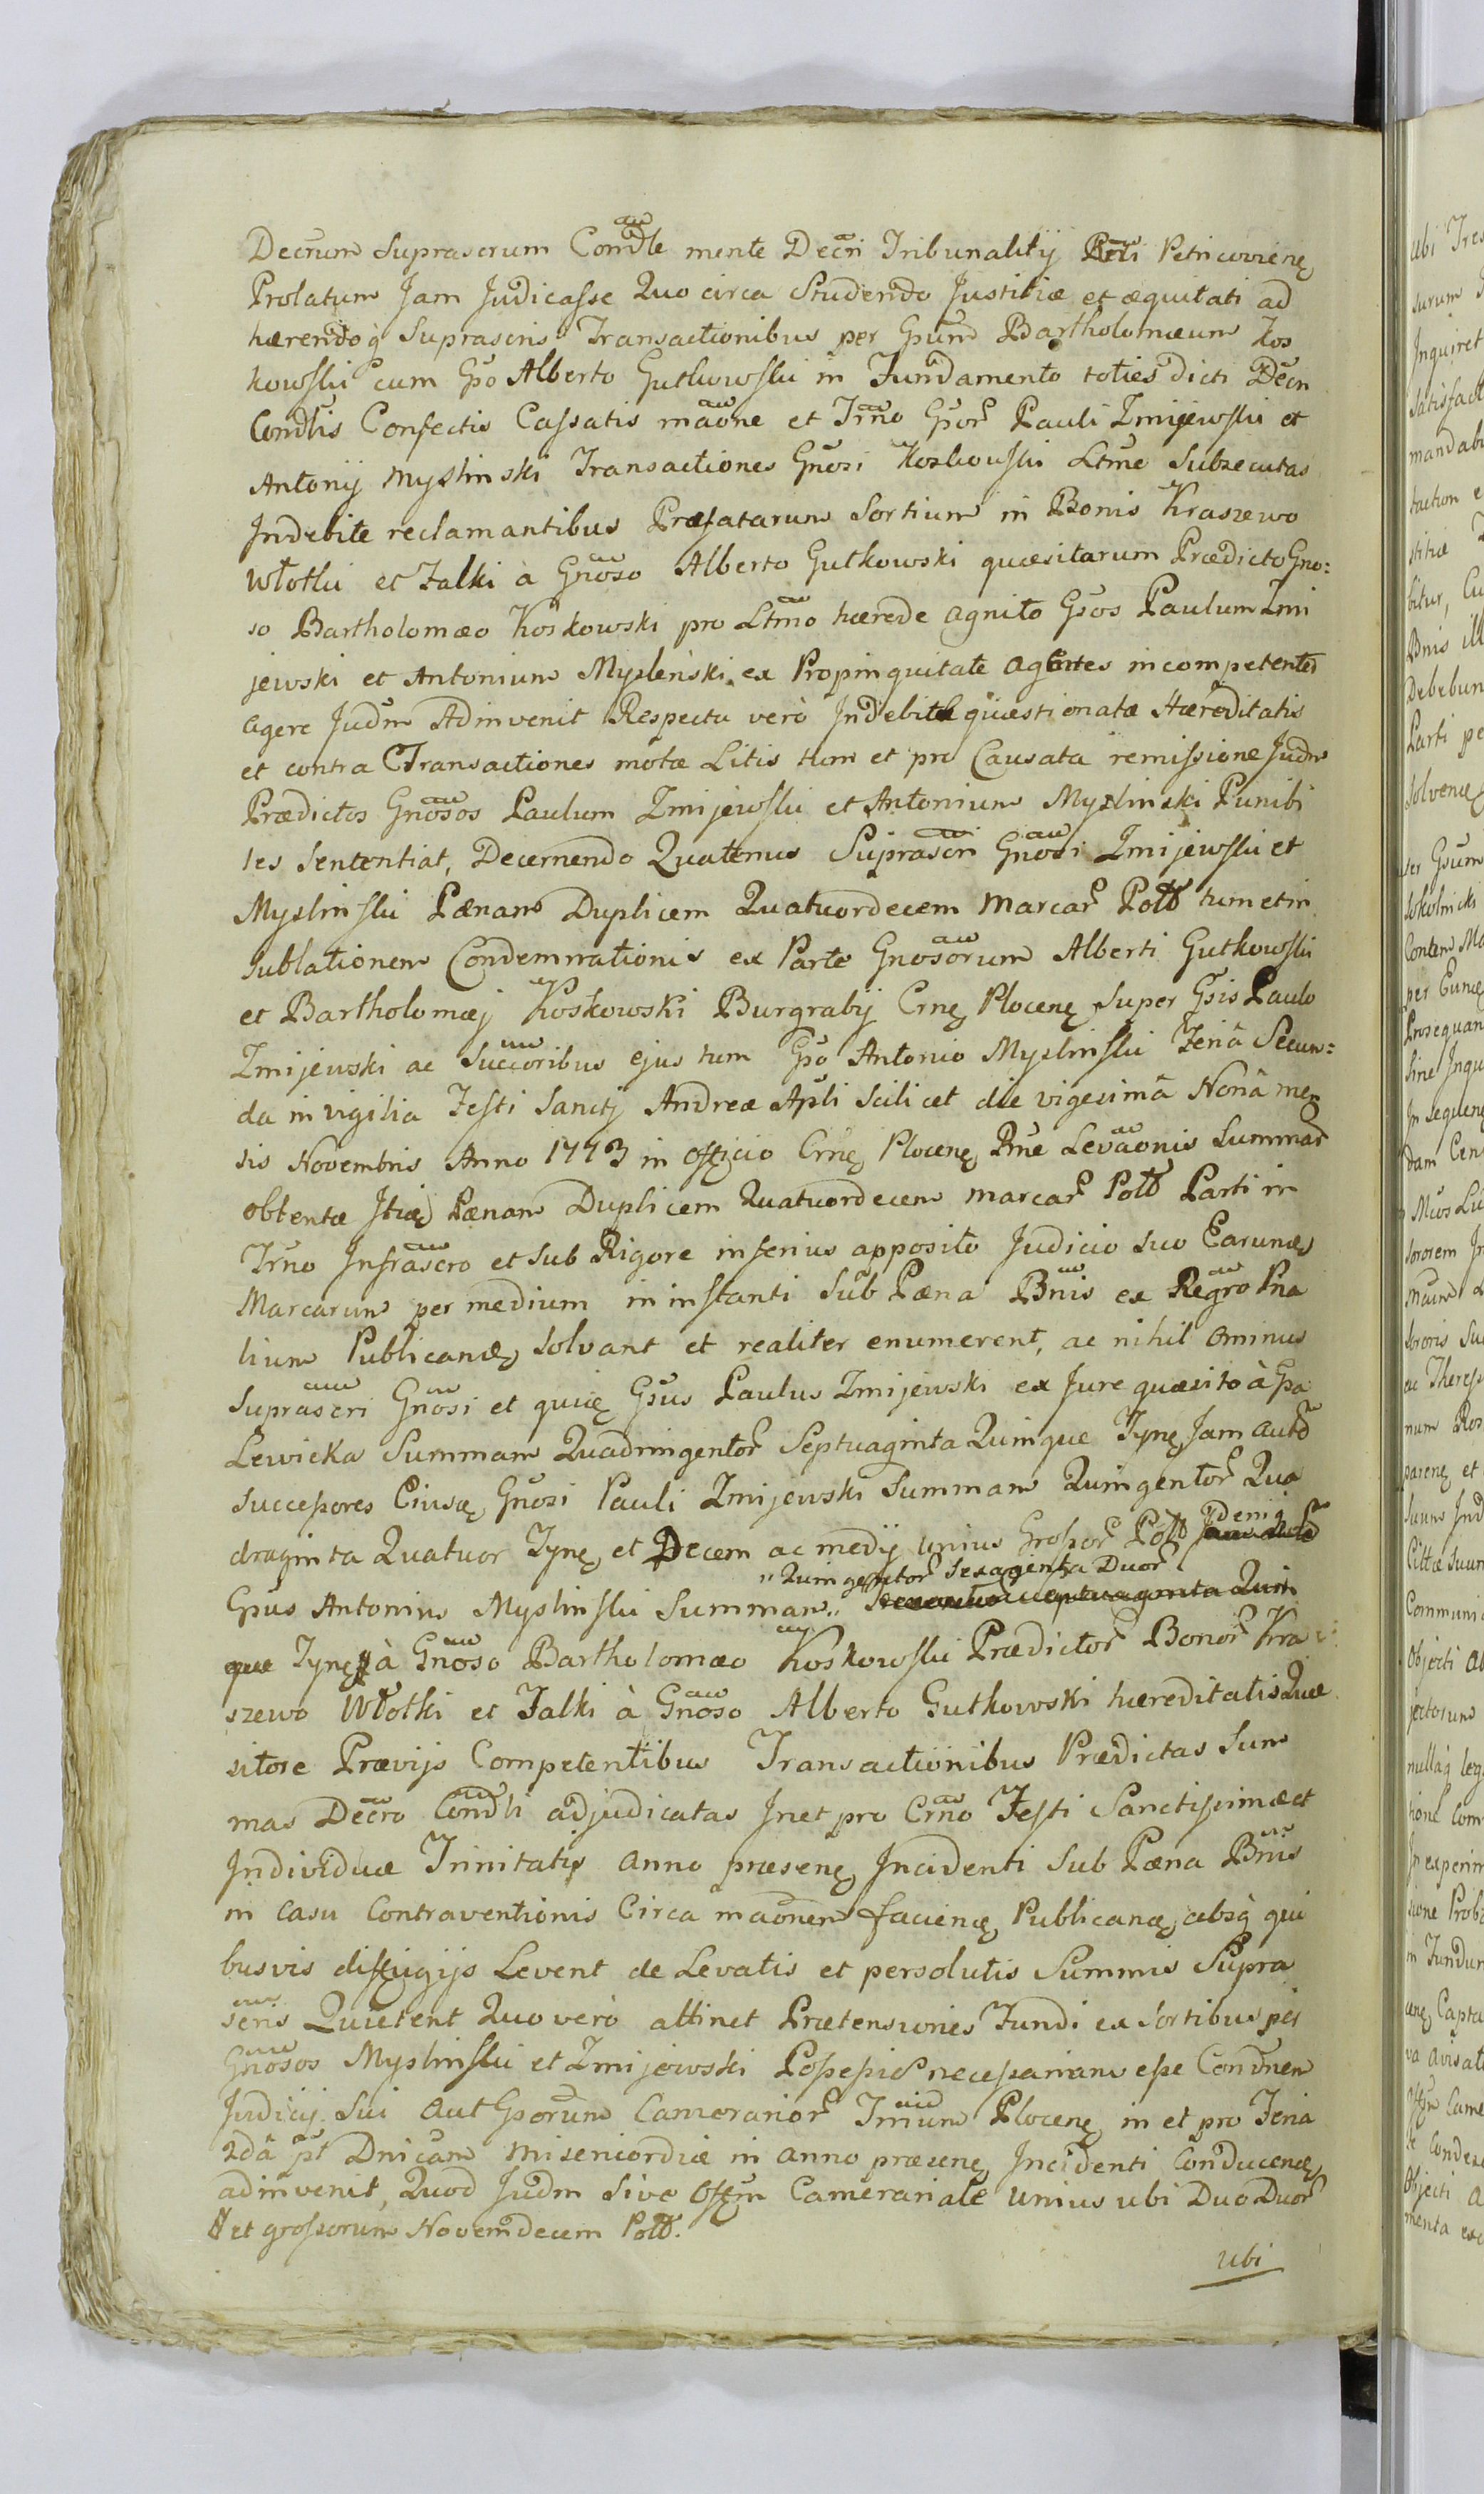 Decrum Suprascrum Condle mente Decri Tribunalitij Rnli Petricoviene
Prolatum Jam Judicasse Quo circa Studendo Justitiæ et æquitati ad
hærendoq Suprascris Transactionibus per Gsum Bartholomæum Kos
kowski cum Gso Alberto Gutkowski in Fundamento toties dicti Decri
Condlis Confectis Cassatis maone et Trno Gsor Pauli Zmijewski et
Antonij Myslinski Transactiones Gnosi Koskowski Ltme Subsecutas
Indebite reclamantibus Præfatarum Sortium in Bonis Kraszewo
Włotki et Falki à Gnoso Alberto Gutkowski quæsitarum Prædicto Gno:
so Bartholomæo Koskowski pro Ltmo hærede agnito Gsos Paulum Zmi
jewski et Antonium Myslenski ex Propinquitate agentes incompetenter
agere Judm Adinvenit Respectu verò Indebitæ quæstionatæ Hæreditatis
et contra Transactiones motæ Litis tum et pro Causata remissione Judm
Prædictos Gnosos Paulum Zmijewski et Antonium Myslinski Punibi
les Sententiat, Decernendo Quatenus Suprascri Gnosi Zmijewski et
Myslinski Pænam Duplicem Quatuordecem Marcar Poll tum et in
Sublationem Condemnationis ex Parte Gnosorum Alberti Gutkowski
et Bartholomæj Koskowski Burgrabij Crne Plocene Super Gsis Paulo
Zmijewski ac Succoribus ejus tum Gso Antonio Myslinski Feriâ Secun:
da in vigilia Festi Sanctj Andreæ Apli Scilicet die vigesimâ Nonâ men
sis Novembris Anno 1773 in officio Crne Plocene Rne Levaonis Summar
obtentæ Itid Pænam Duplicem Quatuordecem marcar Poll Parti in
Trno Infrascro et Sub Rigore inferius apposito Judicio suo Earund
Marcarum per medium in instanti Sub Pæna Bnis ex Regro Pna
lium Publicand solvant et realiter enumerent, ac nihil ominus
Suprascri Gnosi et quid Gsus Paulus Zmijewski ex Jure quæsito à Gsa
Lewicka Summam Quadringentor Septuaginta Quinque Tyne Jam aut
Successores Eiusd Gnosi Pauli Zmijewski Summam Quingentor Qua
draginta Quatuor Tyne et Decem ac medij unius Grossor Poll Deni
" Quingentor Sexaginta Duor
Gsus Antonius Myslinski Summam "
que Tyne # à Gnoso Bartholomæo Koskowski Prædictor Bonor Kra
szewo Włotki et Falki à Gnoso Alberto Gutkowski hæreditatis Quæ
sitore Prævijs Competentibus Transactionibus Prædictas Sum
mas Decro Condli adjudicatas Inet pro Crno Festi Sanctissimæ et
Individuæ Trinitatis anno præsene Incidenti Sub Pæna Bnis
in casu Contraventionis Circa maonem faciend Publicand absq qui
busvis diffugijs Levent de Levatis et persolutis Summis Supra
scris Quietent Quo verò attinet Prætensiones Fundi ex Sortibus per
Gnosos Myslinski et Zmijewski Possessis necessariam esse Condnem
Judicij Sui aut Gsorum Camerarior Trmium Plocene in et pro Feria
2dâ pt Dnicam Misericordiæ in anno præsene Incidenti Conducend
adinvenit, Quod Judm Sive Offm Cameranale unius ubi Duo Duor
# et grossorum Novemdecem Poll.
ubi